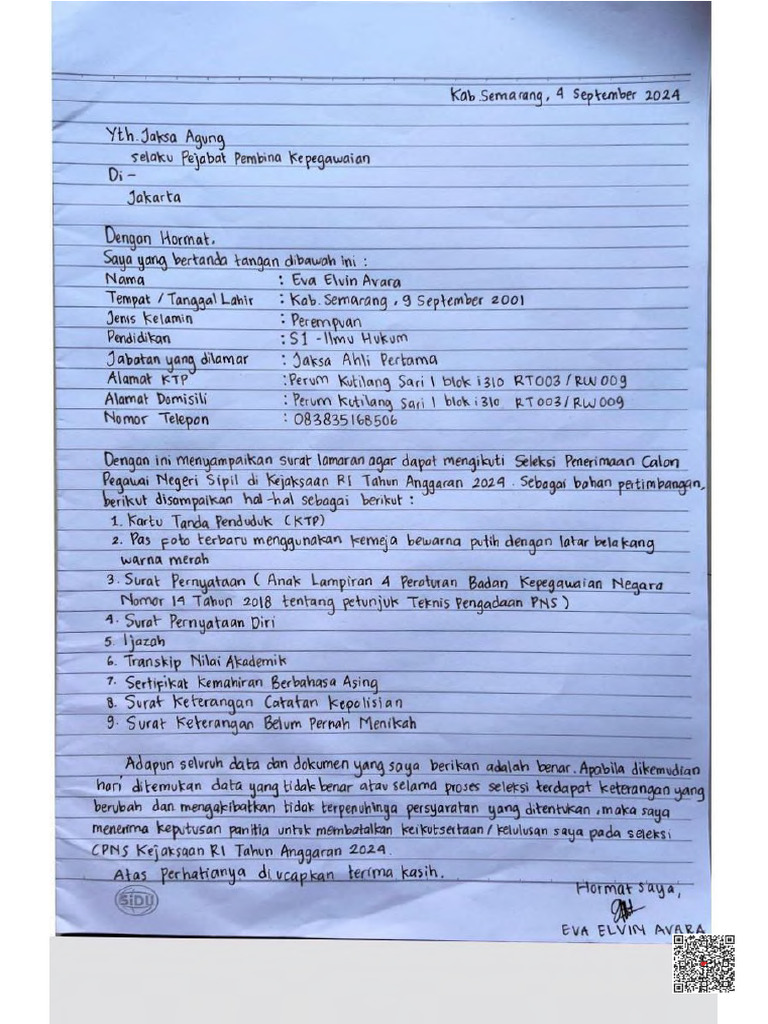 Kab.Semarang, 4 September 2024
Yth. Jaksa Agung
selaku Pejabat Pembina Kepegawaian
Di -
Jakarta
Dengan Hormat,
Saya yang bertanda tangan dibawah ini :
Nama : Eva Elvin Avara
Tempat / Tanggal Lahir : Kab. Semarang, 9 September 2001
Jenis Kelamin : Perempuan
Pendidikan : S1 - Ilmu Hukum
Jabatan yang dilamar : Jaksa Ahli Pertama
Alamat KTP : Perum Kutilang Sari 1 blok i310 RT003/RW009
Alamat Domisili : Perum Kutilang Sari 1 blok i310 RT003/RW009
Nomor Telepon : 083835168506
Dengan ini menyampaikan surat lamaran agar dapat mengikuti Seleksi Penerimaan Calon
Pegawai Negeri Sipil di Kejaksaan RI Tahun Anggaran 2024. Sebagai bahan pertimbangan,
berikut disampaikan hal-hal sebagai berikut :
1. Kartu Tanda Penduduk (KTP)
2. Pas foto terbaru menggunakan kemeja bewarna putih dengan latar belakang
warna merah
3. Surat Pernyataan ( Anak Lampiran 4 Peraturan Badan Kepegawaian Negara
Nomor 14 Tahun 2018 tentang petunjuk Teknis Pengadaan PNS)
4. Surat Pernyataan Diri
5. Ijazah
6. Transkip Nilai Akademik
7. Sertifikat Kemahiran Berbahasa Asing
8. Surat Keterangan Catatan Kepolisian
9. Surat Keterangan Belum Pernah Menikah
Adapun seluruh data dan dokumen yang saya berikan adalah benar. Apabila dikemudian
hari ditemukan data yang tidak benar atau selama proses seleksi terdapat keterangan yang
berubah dan mengakibatkan tidak terpenuhinya persyaratan yang ditentukan, maka saya
menerima keputusan panitia untuk membatalkan keikutsertaan/kelulusan saya pada seleksi
CPNS Kejaksaan RI Tahun Anggaran 2024.
Atas perhatianya diucapkan terima kasih.
Hormat saya,
SiDU
EVA ELVIN AVARA